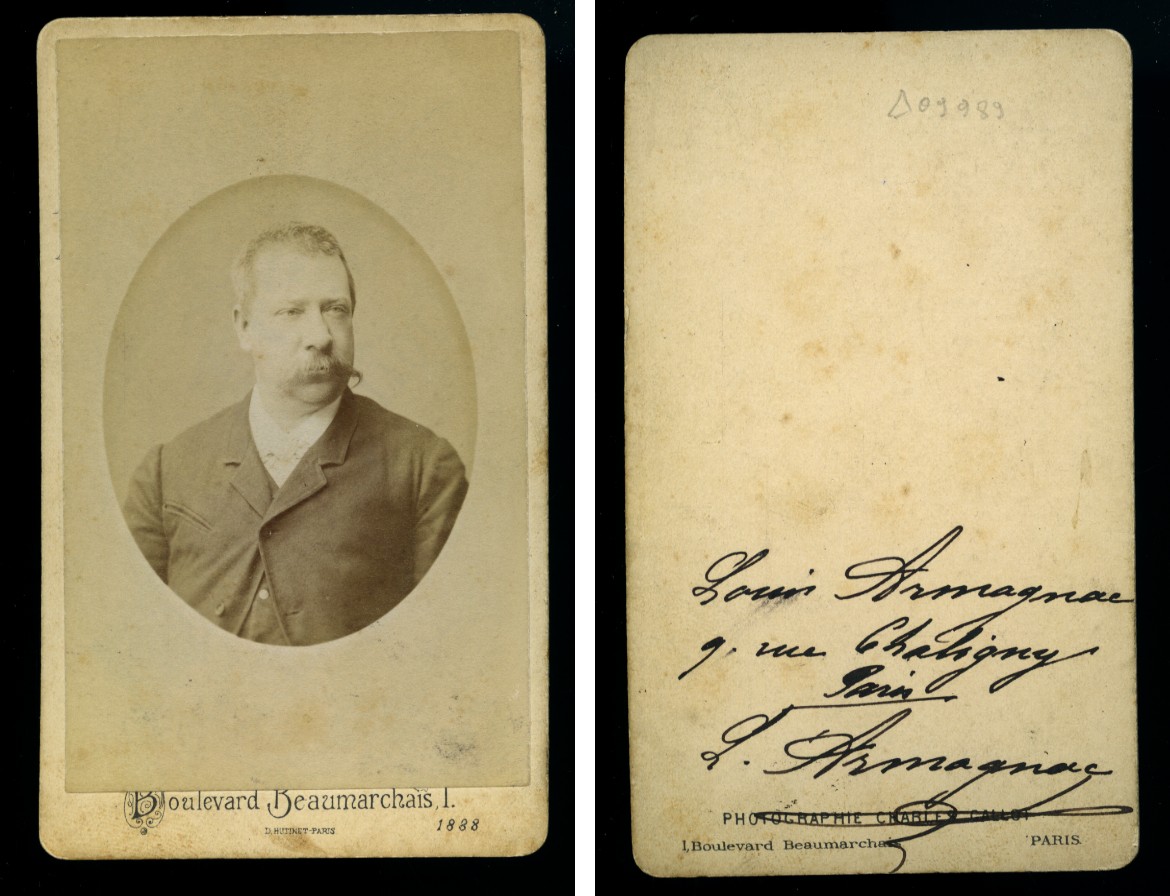 Boulevard Beaumarchais, 1.
D. HUTINET-PARIS
1888
Δ09989
Louis Armagnac
9. rue Chaligny
Paris
L. Armagnac
PHOTOGRAPHIE CHARLES GALLOT
1, Boulevard Beaumarchais PARIS.